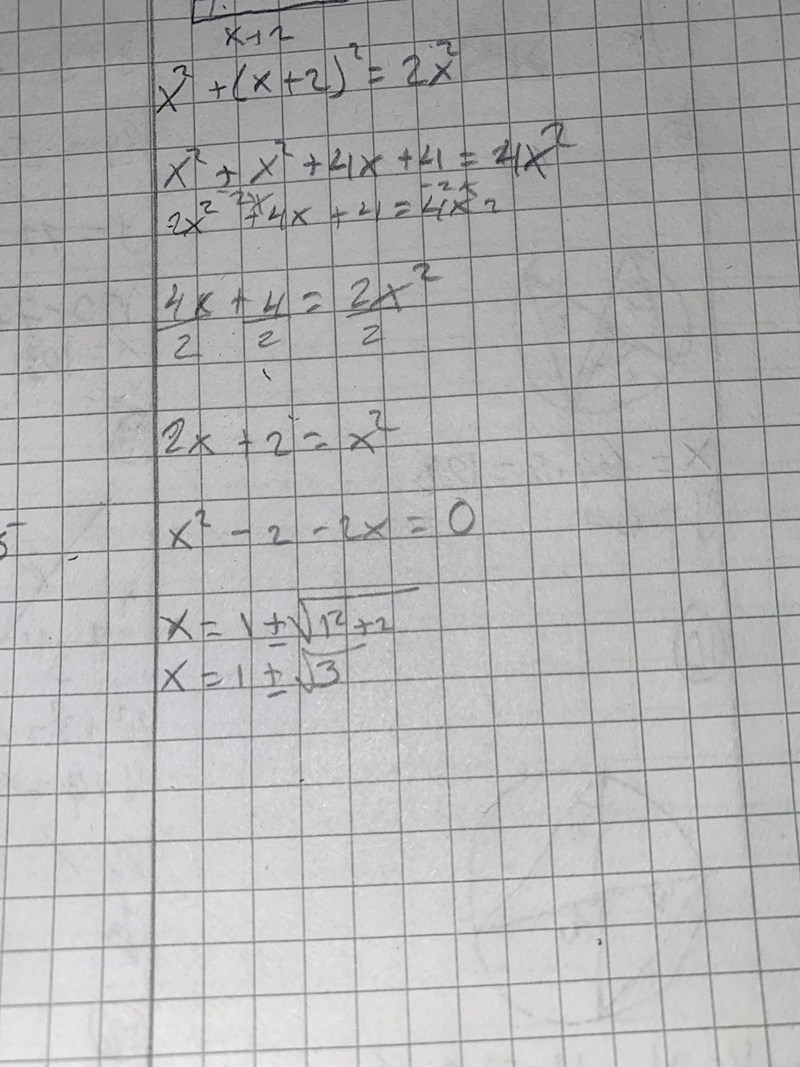 x+2
x² + (x+2)² = 2x²
x² + x² + 4x + 4 = 4x²
-2x -2x
2x² + 4x + 4 = 4x²
4x/2 + 4/2 = 2x²/2
2x + 2 = x²
x² - 2 - 2x = 0
x = 1 ± √1²+2
x = 1 ± √3